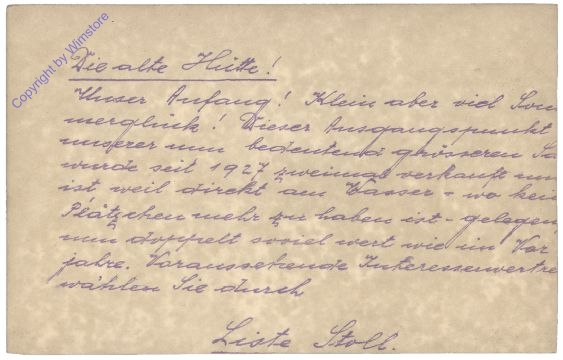 Copyright by Wimstore
Die alte Hütte!
Unser Anfang! Klein aber viel Son
merglück! Dieser Ausgangspunkt
unserer nun bedeutend grösseren Sa
wurde seit 1927 zweimal verkauft und
ist weil direkt am Wasser - wo kein
Plätzchen mehr zu haben ist - gelegen
nun doppelt soviel wert wie im Vor
jahre. Voraussehende Interessenvertre
wählen Sie durch
Liste Stoll.